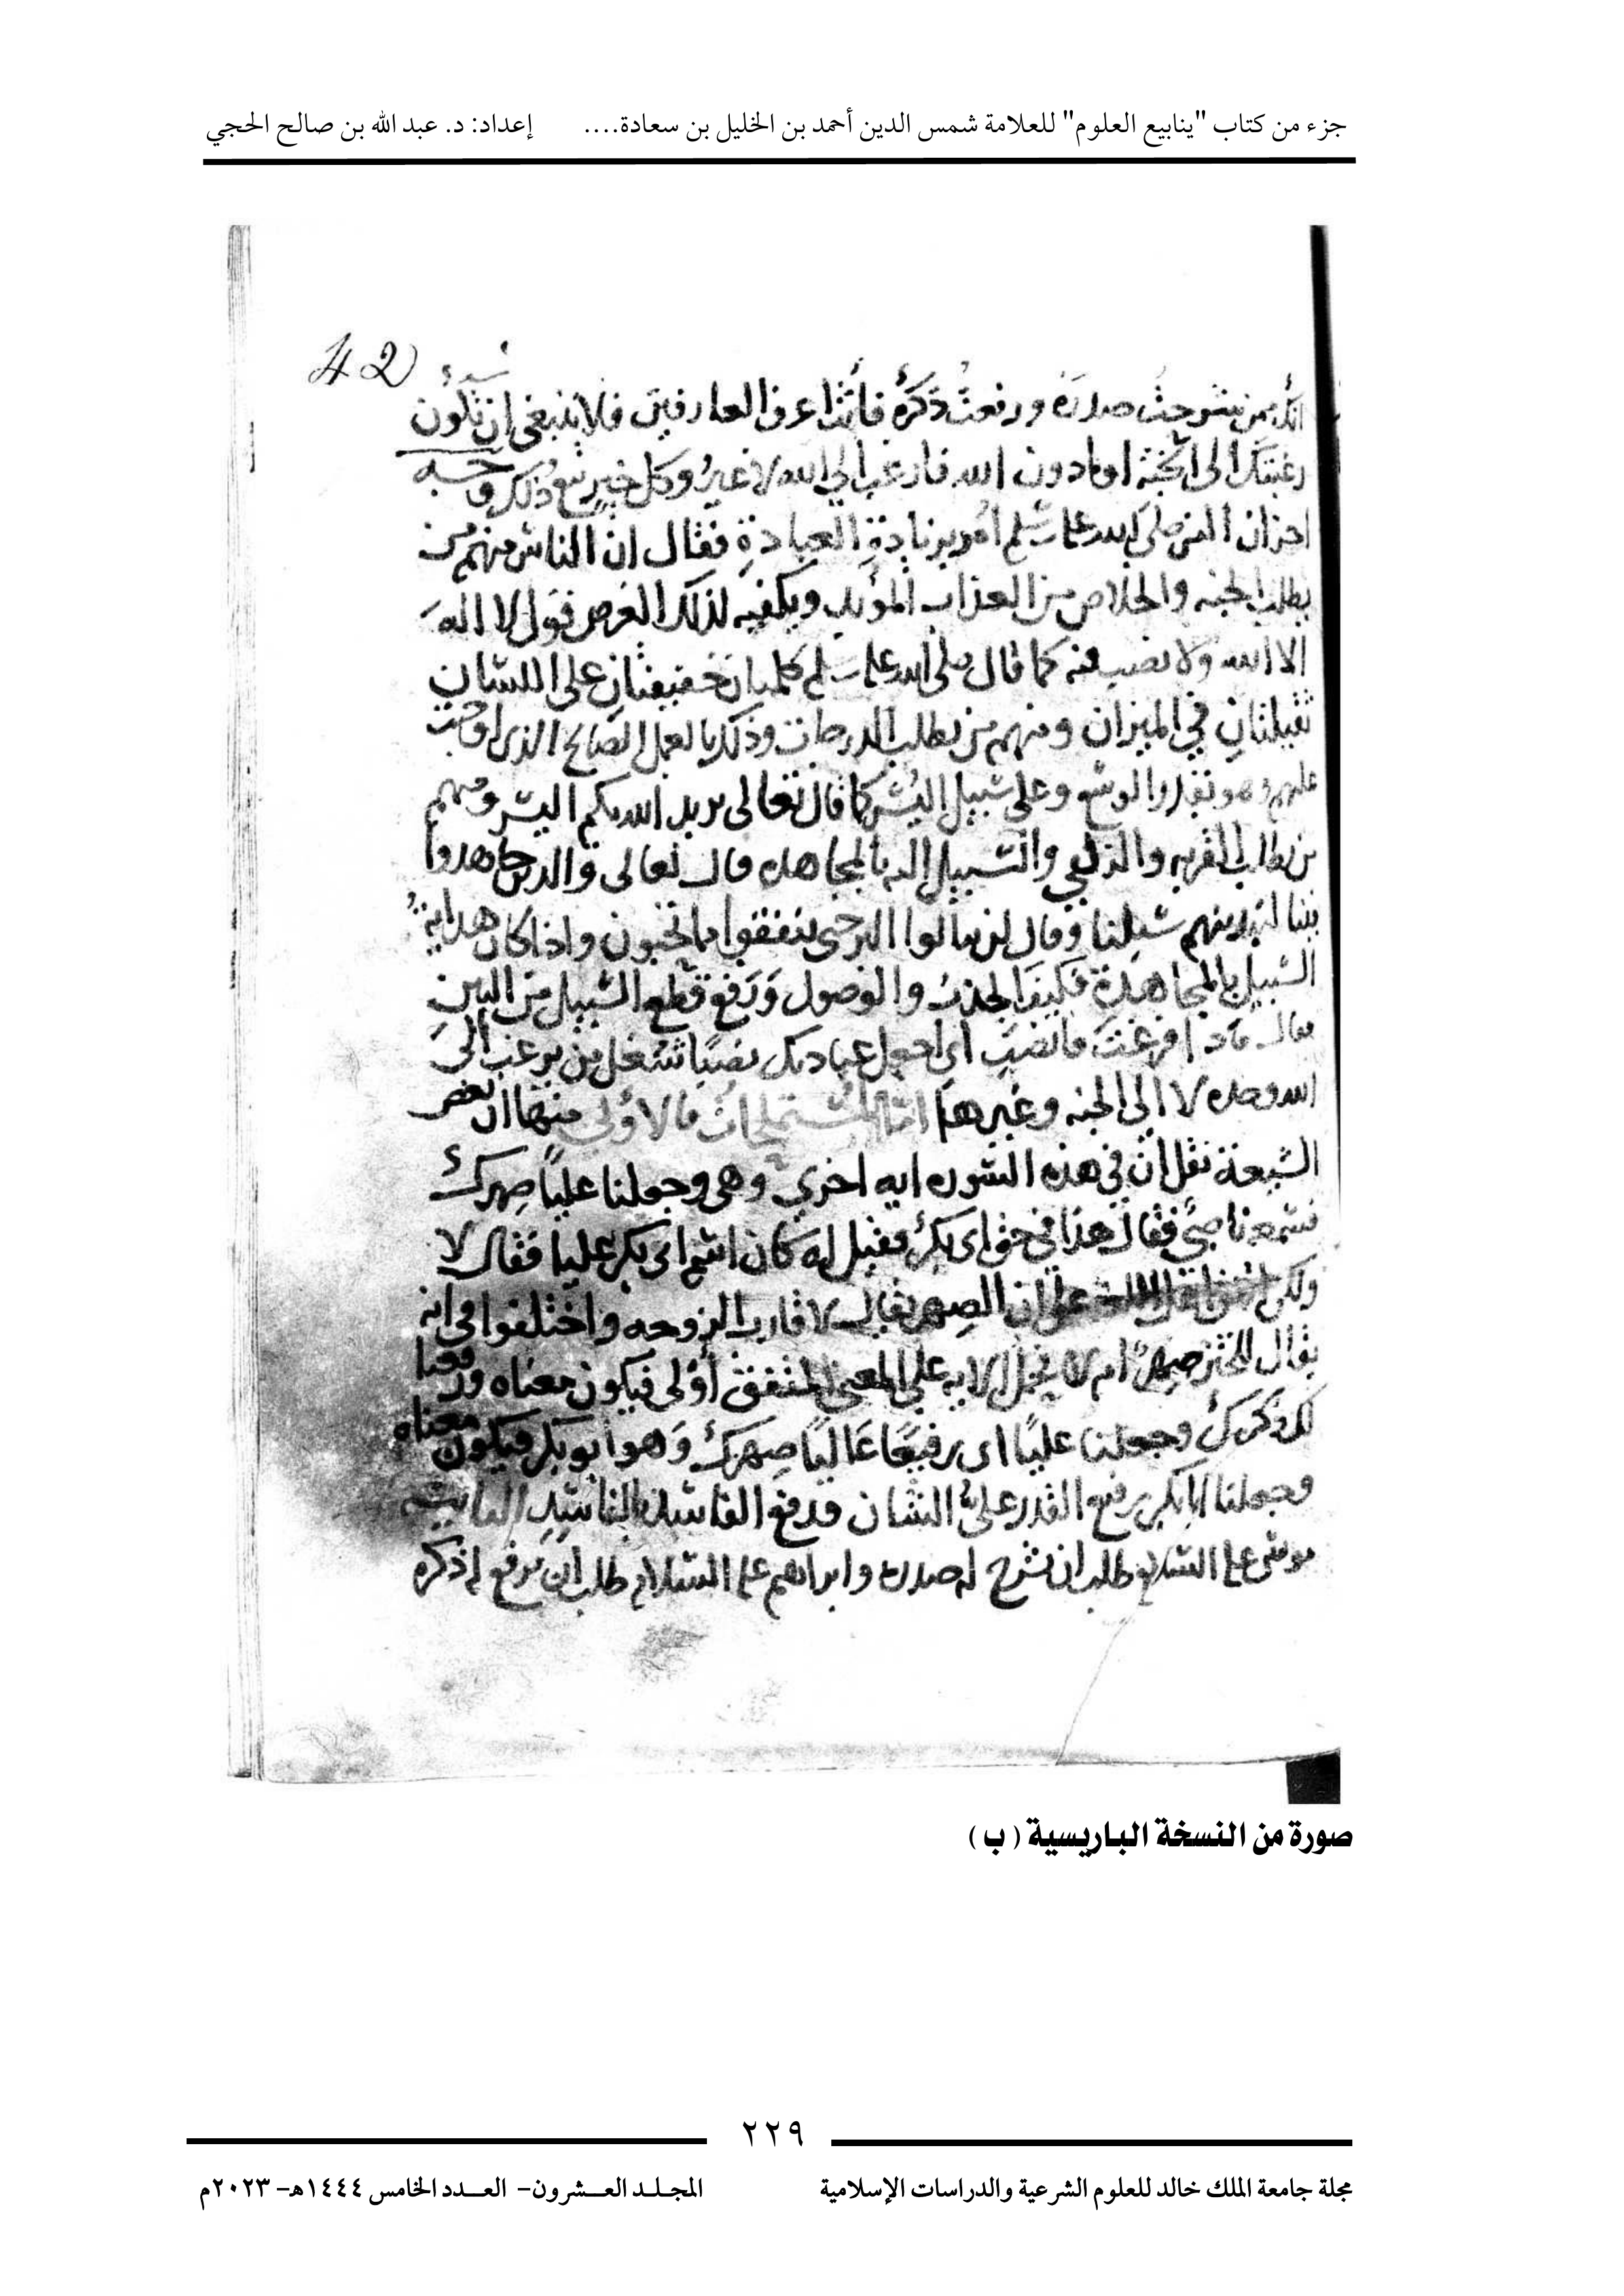 جزء من كتاب "ينابيع العلوم" للعلامة شمس الدين أحمد بن الخليل بن سعادة.... إعداد: د. عبد الله بن صالح الحجي
42
صدره ورفعت ذكره فانت اعرف العارفين فلا ينبغي ان تكون
رغبتك الى الجنة او ما دون الله فارغب الى الله لا غير وكل خير تبع ذلك ووجه
اخر ان النبي صلى الله عليه وسلم امر بزيادة العبادة فقال ان الناس منهم من
يطلب الجنه والخلاص من العذاب المؤبد ويكفيه لذلك الغرض قول لا اله
الا الله ولا نصب فيه كما قال صلى الله عليه وسلم كلمتان خفيفتان على اللسان
ثقيلتان في الميزان ومنهم من يطلب الدرجات وذلك بالعمل الصالح الذي اوجب
عليهم وهو بقدر الوسع وعلى سبيل اليسر كما قال تعالى يريد الله بكم اليسر ومنهم
من يطلب القربه والزلفى والسبيل اليه بالمجاهده قال تعالى والذين جاهدوا
فينا لنهدينهم سبلنا وقال لن تنالوا البر حتى تنفقوا مما تحبون واذا كان هداية
السبيل بالمجاهدة فكيف الجذب والوصول ورفع قطع السبيل من البين
فقال فاذا فرغت فانصب اي اجعل عبادتك نصبا شغل من يرغب الى
الله وحده لا الى الجنه وغيرها اما المستملحات فالاولى منها ان بعض
الشيعة نقل ان في هذه السوره ايه اخرى وهي وجعلنا عليا صهرك
فسمعه فقال هذا في حق ابي بكر فقيل له كان اسم ابي بكر عليا فقال لا
ولكن اهل اللغة على ان الصهر يقال لاقارب الزوجه واختلفوا في انه
يقال للختن صهر ام لا فحمل الايه على المعنى المتفق اولى فيكون معناه ورفعنا
لك ذكرك وجعلنا عليا اي رفيعا عاليا صهرك وهو ابو بكر فيكون معناه
وجعلنا ابا بكر رفيع القدر علي الشان فدفع الفاسد بالفاسد
موسى عليه السلام طلب ان نشرح له صدره وابراهيم عليه السلام طلب ان يرفع له ذكره
صورة من النسخة الباريسية ( ب )
٢٢٩
مجلة جامعة الملك خالد للعلوم الشرعية والدراسات الإسلامية المجـلـد العـــشرون- العـــدد الخامس ١٤٤٤هـ- ٢٠٢٣م